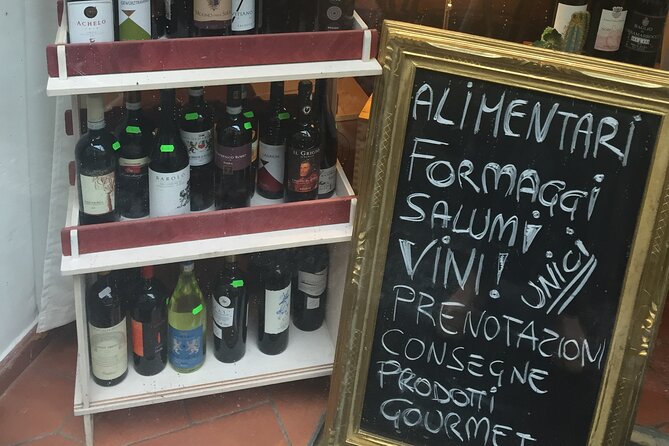 ACHELO
BAROLO
IL GRIGIO
ALIMENTARI
FORMAGGI
SALUMI
VINI!
UNICI
PRENOTAZIONI
CONSEGNE
PRODOTTI
GOURMET